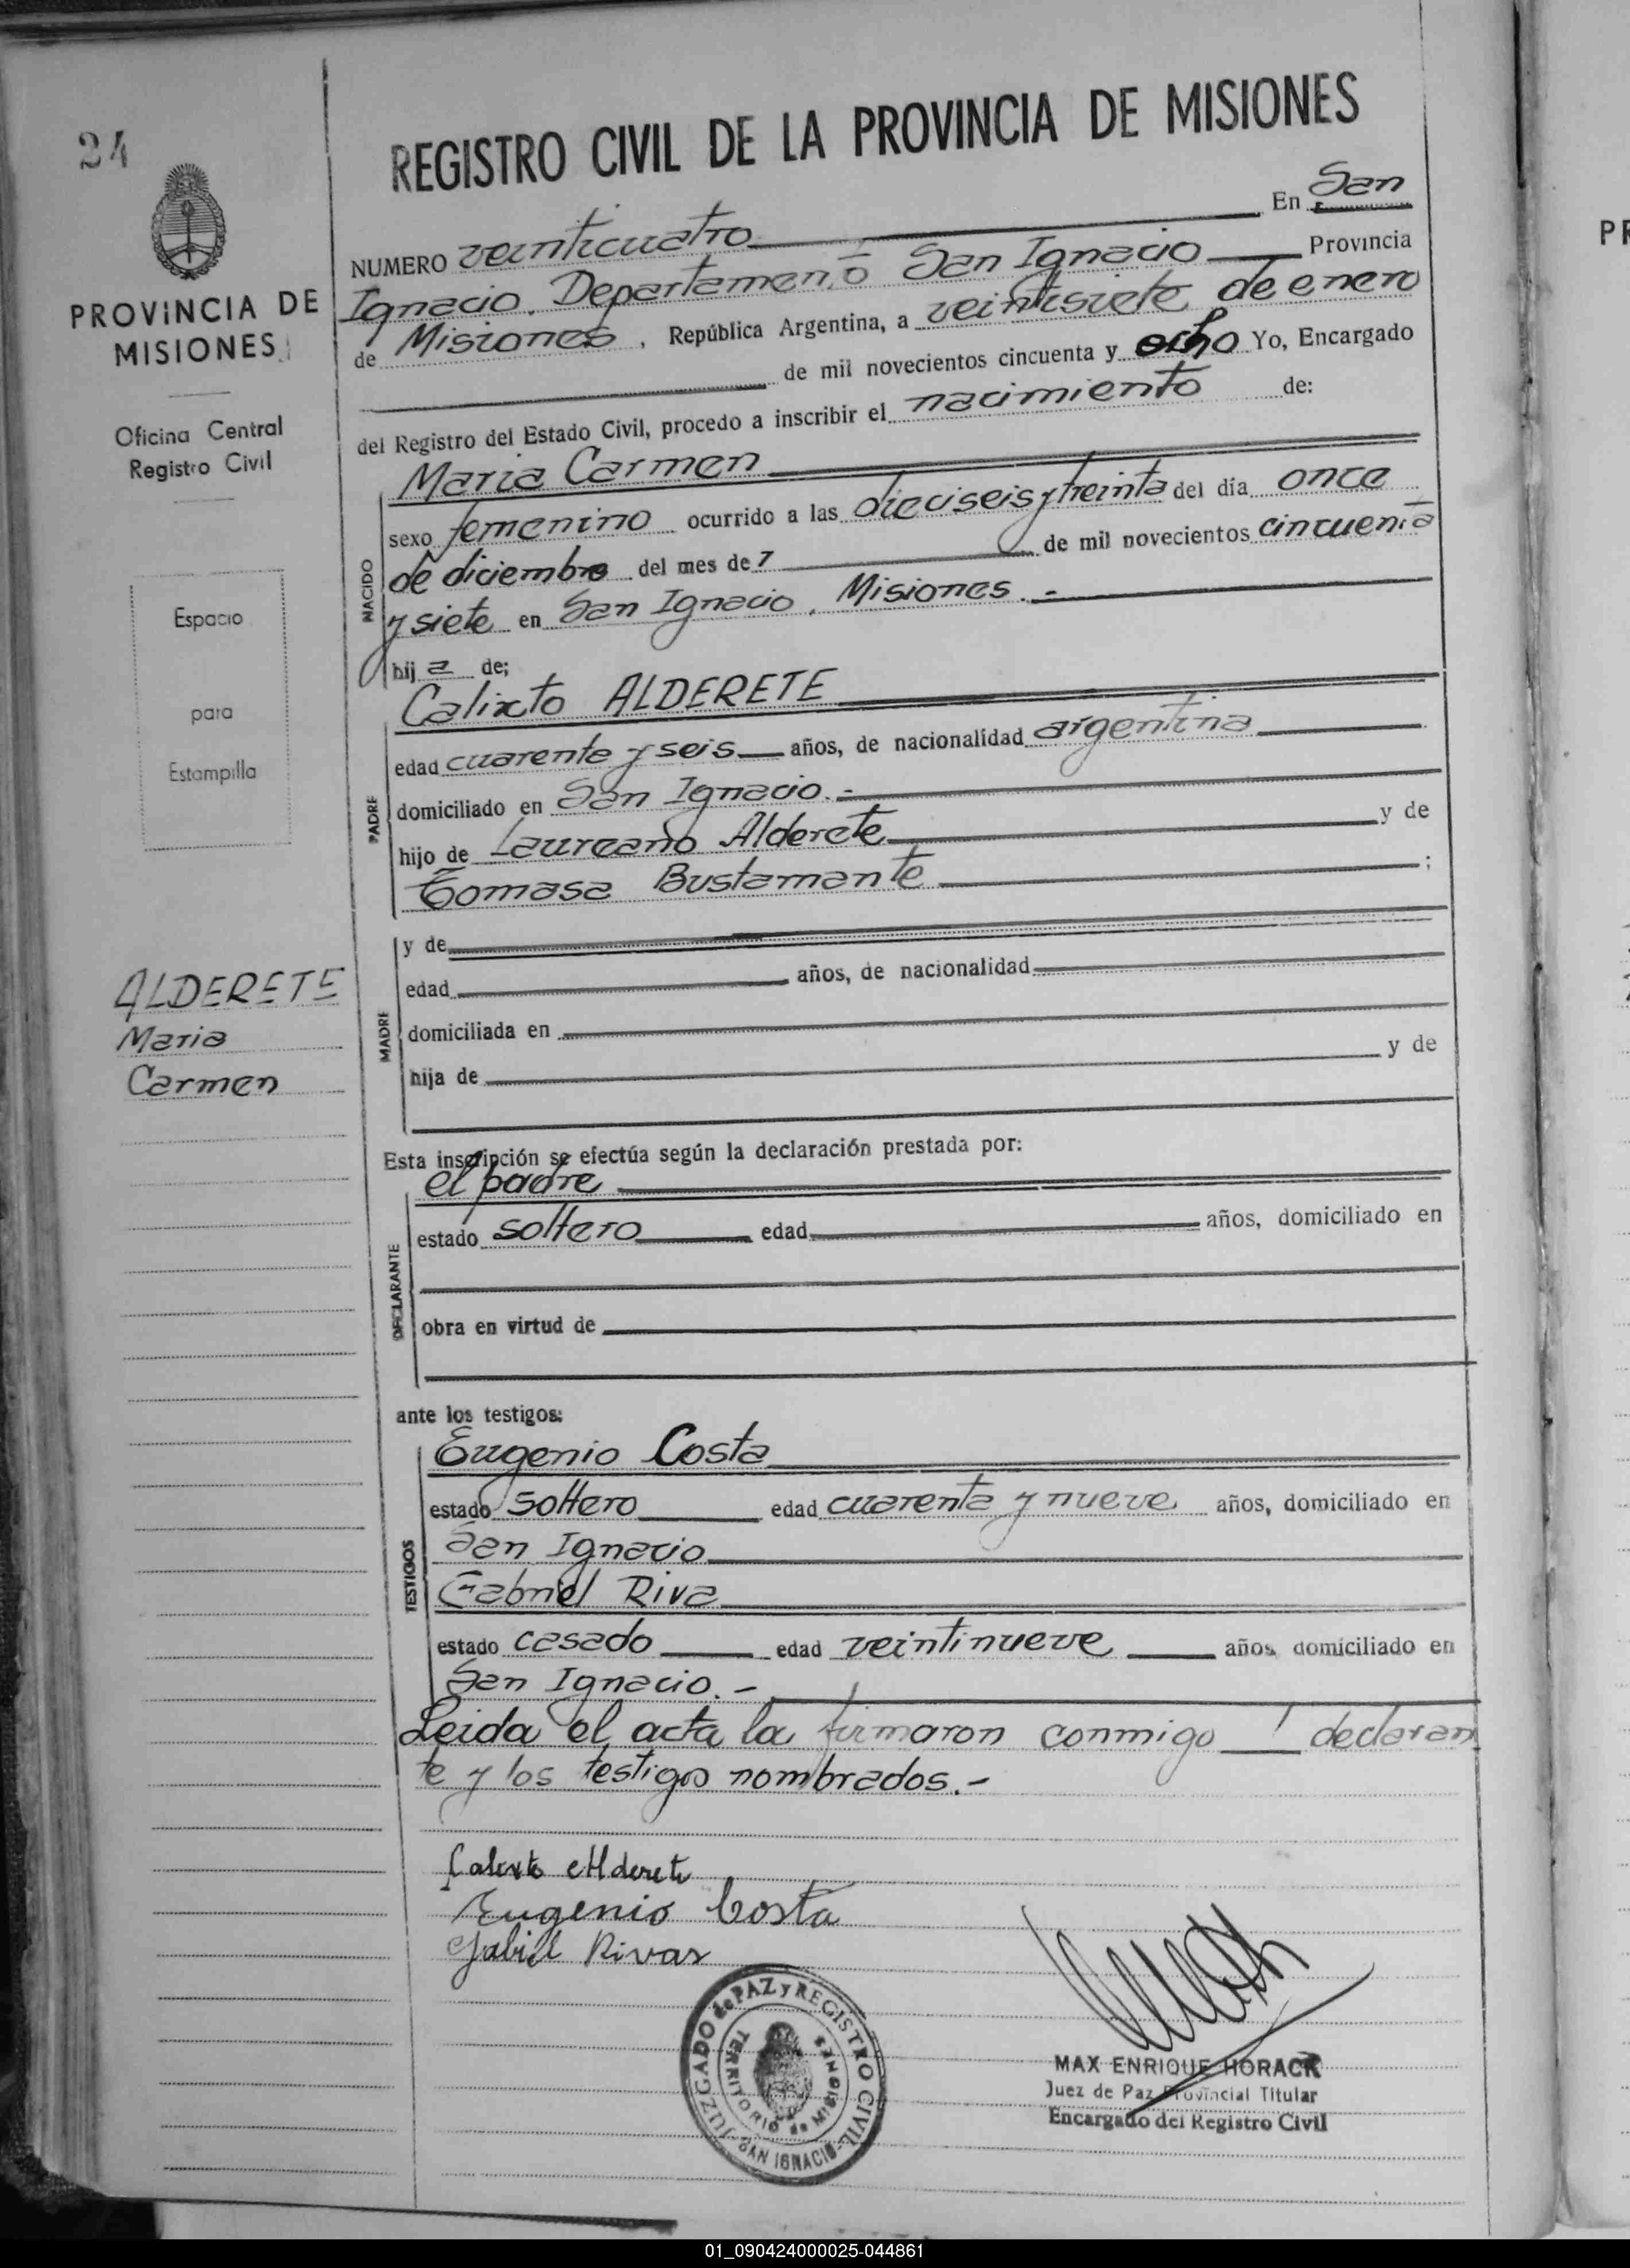 24
PROVINCIA DE
MISIONES
Oficina Central
Registro Civil
Espacio
para
Estampilla
ALDERETE
Maria
Carmen
REGISTRO CIVIL DE LA PROVINCIA DE MISIONES
NUMERO veinticuatro En San
Ignacio, Departamento San Ignacio Provincia
de Misiones, República Argentina, a veintisiete de enero
de mil novecientos cincuenta y ocho Yo, Encargado
del Registro del Estado Civil, procedo a inscribir el nacimiento de:
NACIDO
Maria Carmen
sexo femenino ocurrido a las dieciseis y treinta del día once
de diciembre del mes de de mil novecientos cincuenta
y siete en San Ignacio, Misiones.-
hij a de;
PADRE
Calixto ALDERETE
edad cuarenta y seis años, de nacionalidad argentina
domiciliado en San Ignacio.-
hijo de Laureano Alderete y de
Tomasa Bustamante ;
MADRE
y de
edad años, de nacionalidad
domiciliada en
hija de y de
Esta inscripción se efectúa según la declaración prestada por:
DECLARANTE
el padre
estado soltero edad años, domiciliado en
obra en virtud de
ante los testigos:
TESTIGOS
Eugenio Costa
estado soltero edad cuarenta y nueve años, domiciliado en
San Ignacio
Gabriel Riva
estado casado edad veintinueve años domiciliado en
San Ignacio.-
Leida el acta la firmaron conmigo l declaran
te y los testigos nombrados.-
Calixto Alderete
Eugenio Costa
Gabriel Rivas
JUZGADO de PAZ y REGISTRO CIVIL
TERRITORIO de MISIONES
SAN IGNACIO
MAX ENRIQUE HORACK
Juez de Paz Provincial Titular
Encargado del Registro Civil
PR
01_090424000025-044861